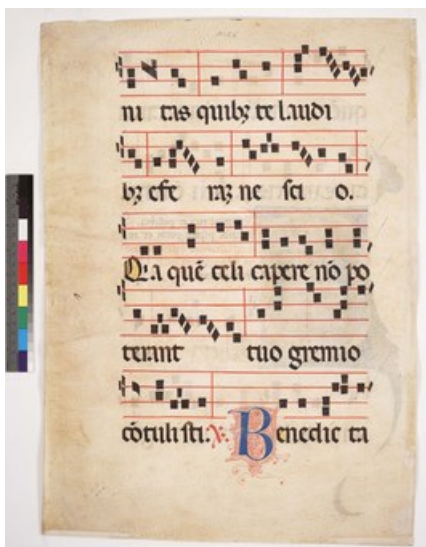 ni tas quibꝫ te laudi
bꝫ effe raꝫ ne sci o.
Q:a quē celi capere nō po
terant tuo gremio
cōtuli sti: ℣. Benedic ta